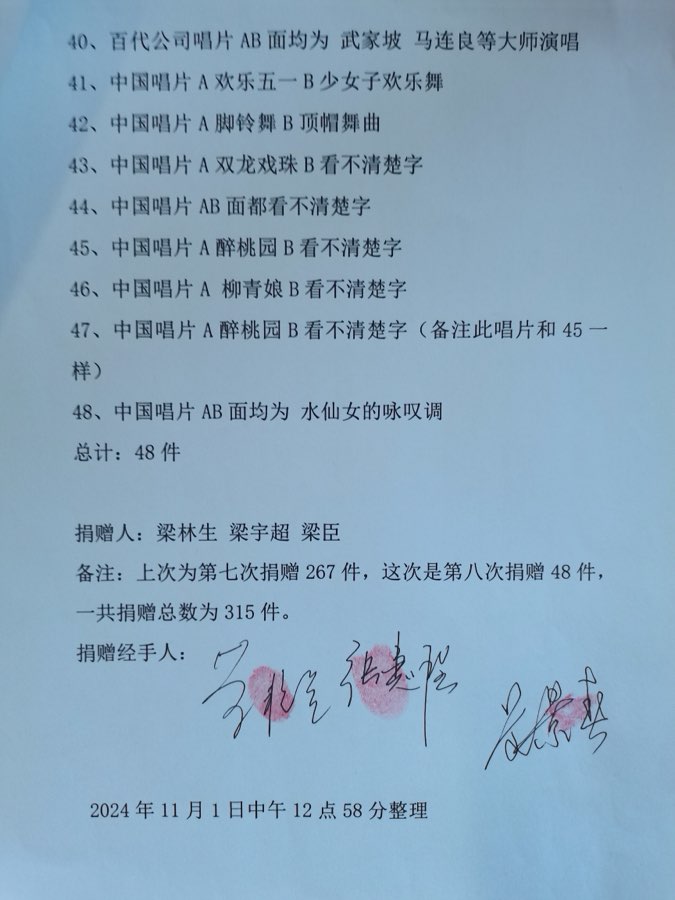 40、百代公司唱片 AB 面均为 武家坡 马连良等大师演唱
41、中国唱片 A 欢乐五一 B 少女子欢乐舞
42、中国唱片 A 脚铃舞 B 顶帽舞曲
43、中国唱片 A 双龙戏珠 B 看不清楚字
44、中国唱片 AB 面都看不清楚字
45、中国唱片 A 醉桃园 B 看不清楚字
46、中国唱片 A 柳青娘 B 看不清楚字
47、中国唱片 A 醉桃园 B 看不清楚字（备注此唱片和 45 一
样）
48、中国唱片 AB 面均为 水仙女的咏叹调
总计：48 件
捐赠人：梁林生 梁宇超 梁臣
备注：上次为第七次捐赠 267 件，这次是第八次捐赠 48 件，
一共捐赠总数为 315 件。
捐赠经手人：
2024 年 11 月 1 日中午 12 点 58 分整理